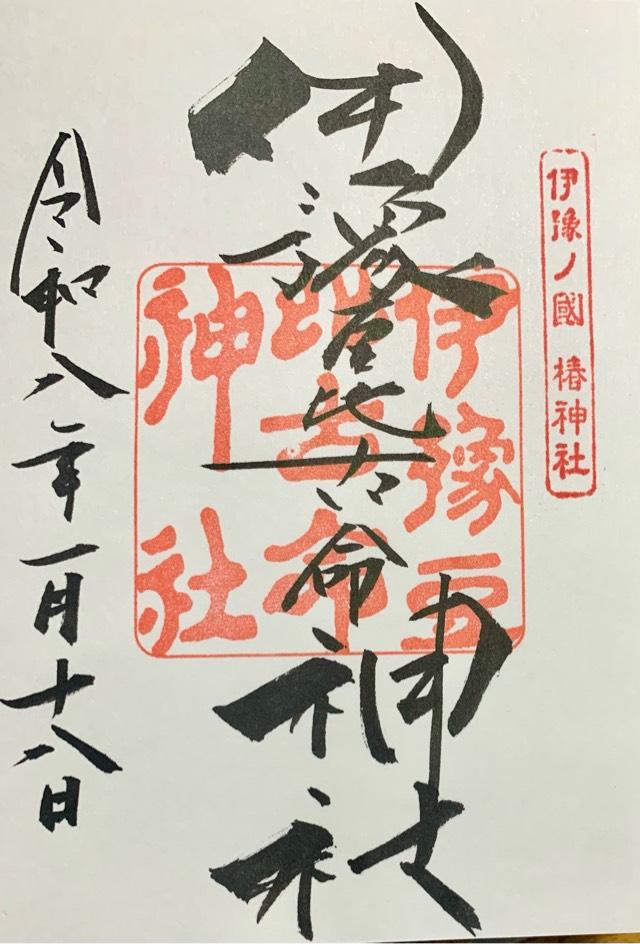 伊豫ノ國 椿神社
伊豫豆比古命神社
伊豫豆
比古命
神社
令和八年一月十八日